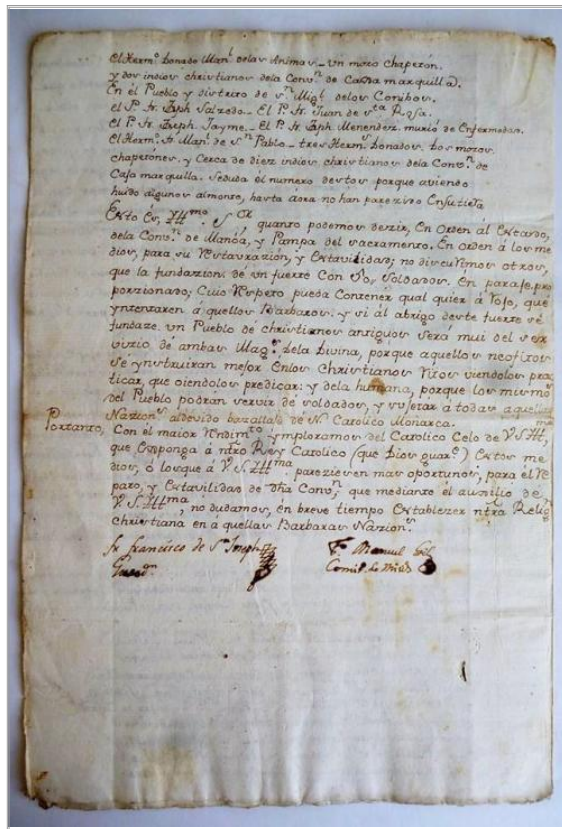 El Herm.º Donado Man.l delas Animas – Un mozo chaperón.
y dos indios christianos dela Conv.n de Caxamarquilla.
En el Pueblo y distrito de S.n Mig.l delos Conibos.
el P. Fr. Jph Salzedo – El P. Fr. Juan de S.ta Rosa.
El P. Fr. Joseph Jayme – El P. Fr. Jph. Menendez. murió de Enfermedad.
el Herm.º Fr. Man.l de S.n Pablo – tres Herm.s Donados. Dos mozos
chaperónes, y Cerca de diez indios christianos dela Conv.n de
Caxamarquilla. Seduda el numero destos porque aviendo
huido algunos almonte, hasta aora no han parezido
Esto Es, Ill.mo S.or quanto podemos dezir, En Orden al Estado,
dela Conv.n de Manóa, y Pampa del Sacramento. En orden á los me
dios, para su Restaurazión, y Estavilidad; no discurrimos otros,
que la fundazion de un fuerte Con Soldados. En paraje pro
porzionado; Cuio Respeto pueda Contener qual quier arrojo, que
yntentaren aquellos Barbaros. y si al abrigo deste fuerte se
fundaze un Pueblo de christianos antiguos Será mui del ser
vizio de ambas Mag.s Dela Divina, porque aquellos neofitos
Sé ynstruiran mejor Enlos Christianos Ritos viendolos prac
ticar, que oiendolos predicar: y dela humana, porque los mismos
del Pueblo podran servir de soldados, y sujetar á todas aquellas
Nazion.s aldevido basallaje de N. Catolico Monarca.
Portanto, Con el maior Rendim.to ymploramos del Catolico Celo de V.S.Ill.ma
que Exponga á ntro Rey Catolico (que Dios guar.e) Estos me
dios, ó losque á V.S.Ill.ma parezieren mas oportunos, para el Re
paro, y Estavilidad de dha Conv.n; que mediante el auxilio de
V.S.Ill.ma, no dudamos, en breve tiempo Establezer ntra Relig.n
Christiana en aquellas Barbaras Nazion.s
Fr. Francisco de S.n Joseph Fr. Manuel
Guard.n Comis.º de Mis.s